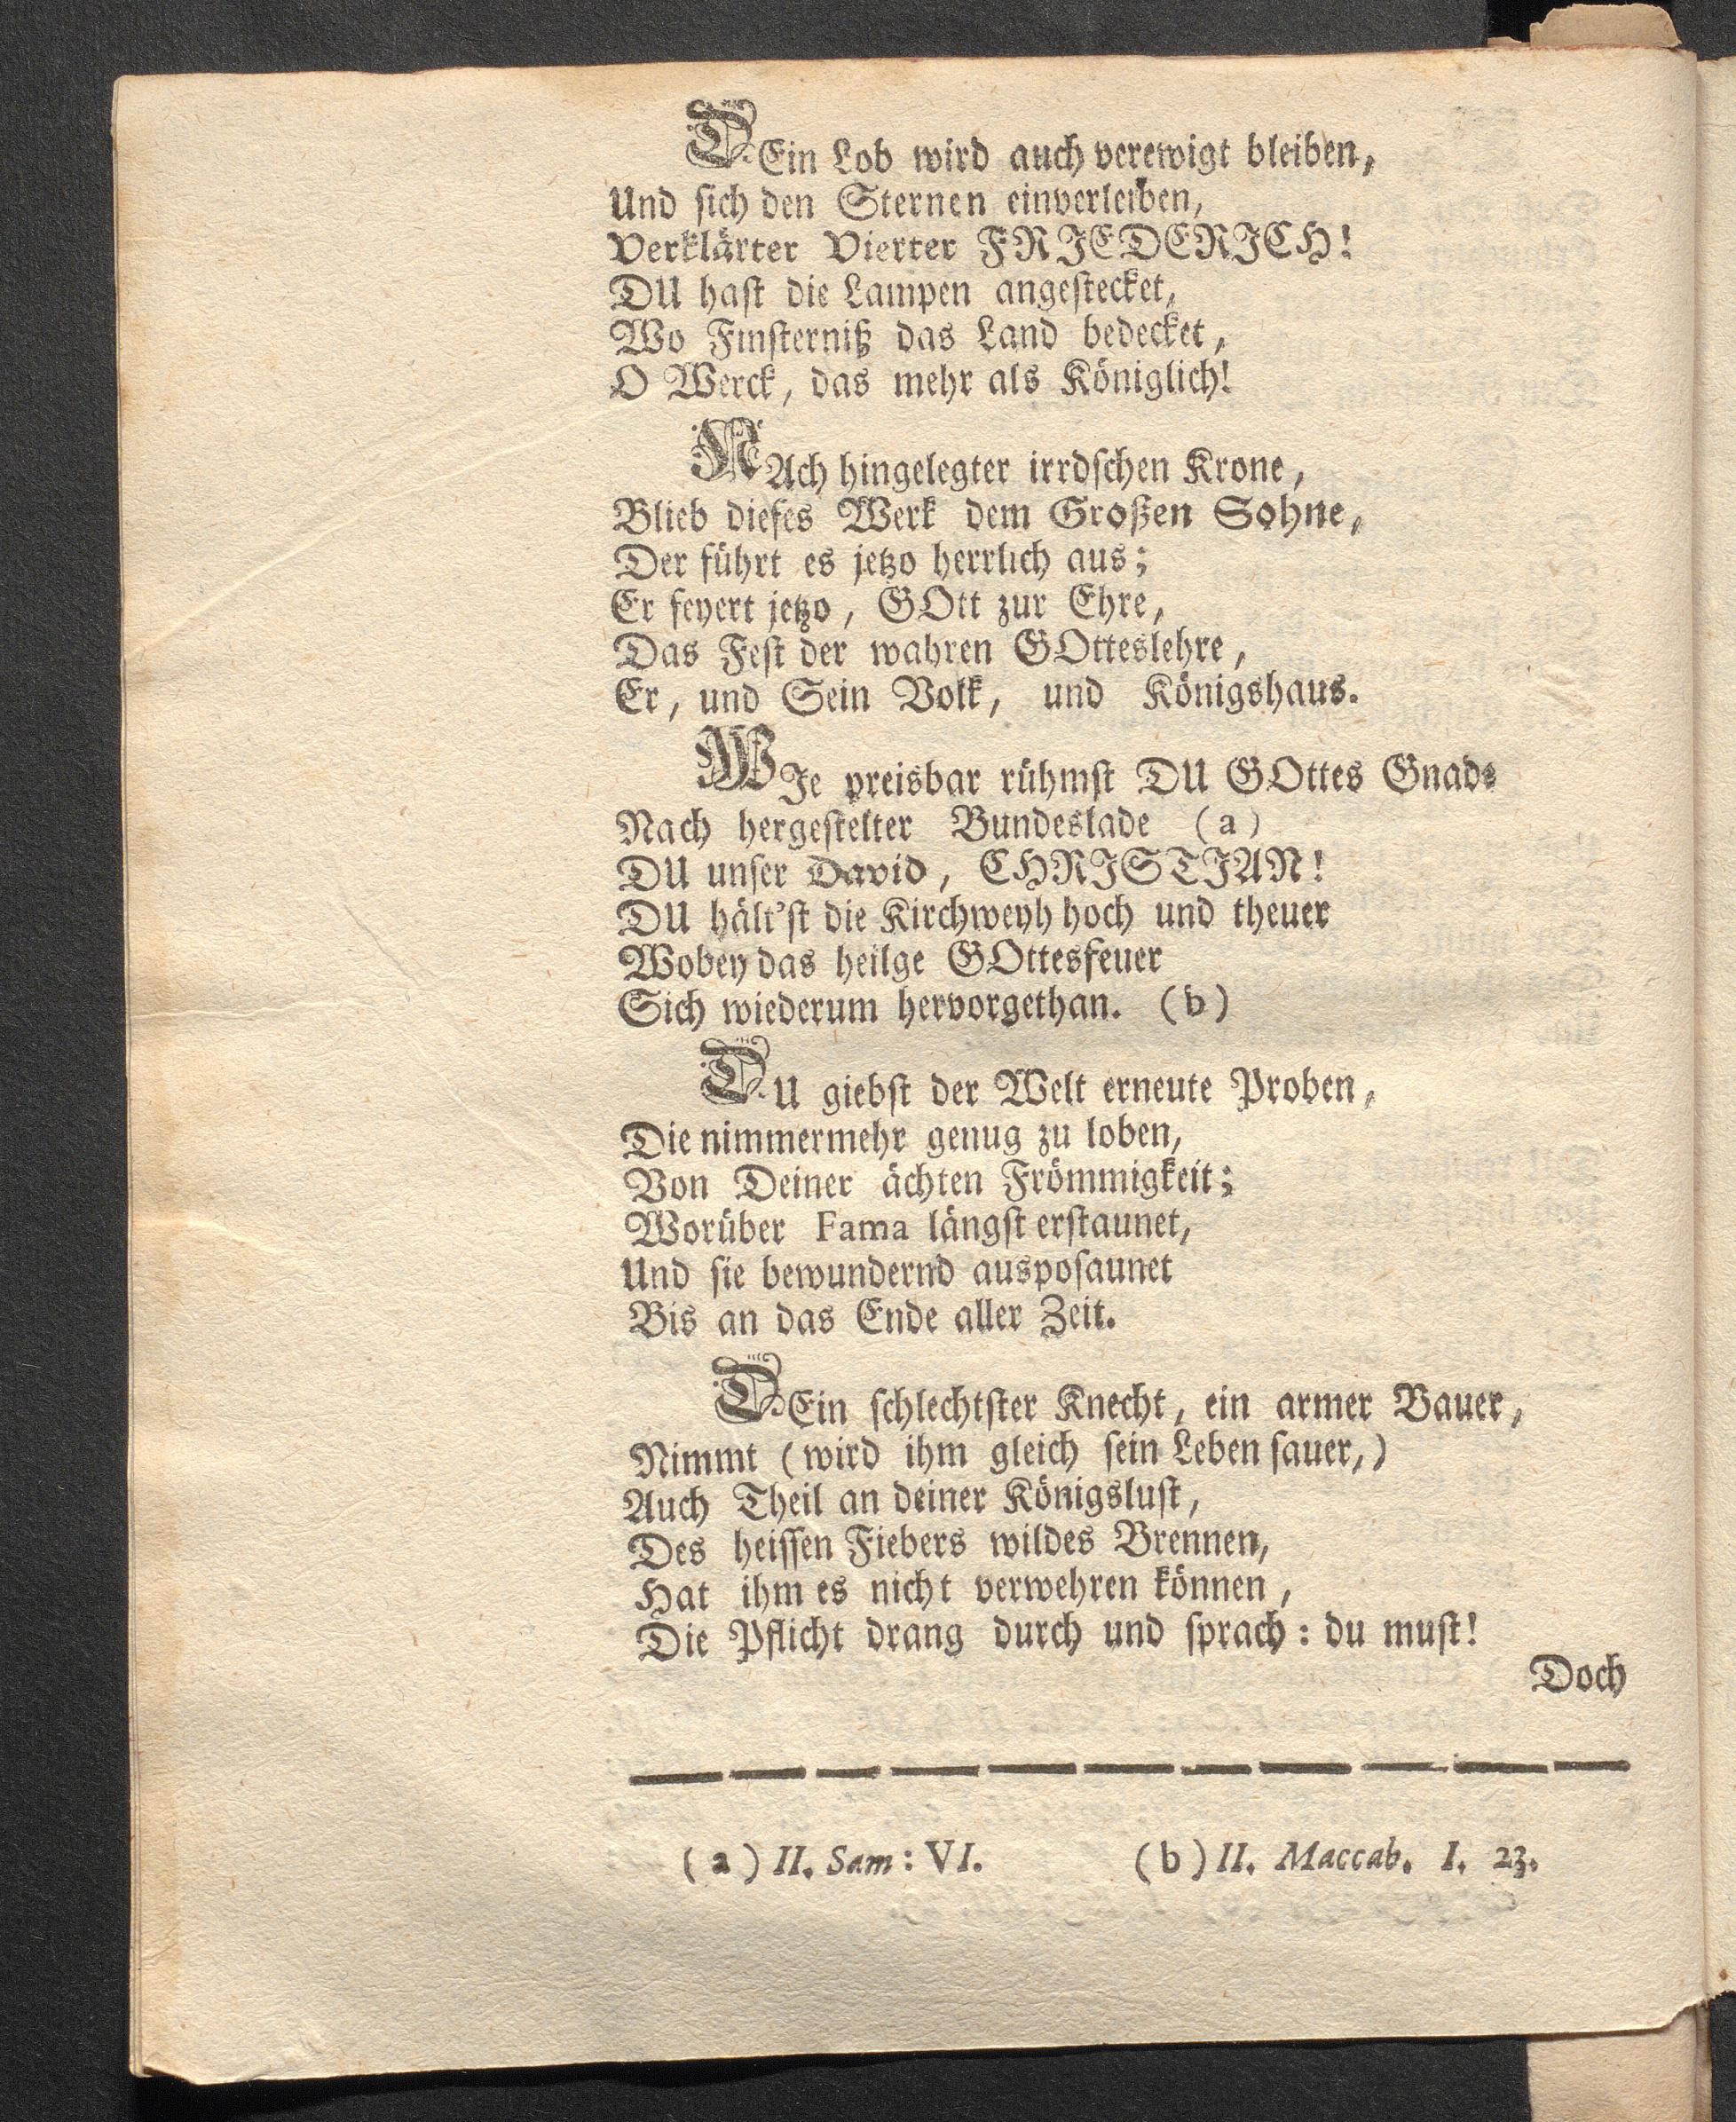 DEin Lob wird auch verewigt bleiben,
Und sich den Sternen einverleiben,
Verklärter Vierter FRIEDERICH!
DU hast die Lampen angestecket,
Wo Finsterniß das Land bedecket,
O Werck, das mehr als Königlich!
NAch hingelegter irrdschen Krone,
Blieb dieses Werk dem Großen Sohne,
Der führt es jetzo herrlich aus;
Er feyert jetzo, GOtt zur Ehre,
Das Fest der wahren GOtteslehre,
Er, und Sein Volk, und Königshaus.
WIe preisbar rühmst DU GOttes Gnade
Nach hergestelter Bundeslade (a)
DU unser David, CHRISTIAN!
DU hält'st die Kirchweyh hoch und theuer
Wobey das heilge GOttesfeuer
Sich wiederum hervorgethan. (b)
DU giebst der Welt erneute Proben,
Die nimmermehr genug zu loben,
Von Deiner ächten Frömmigkeit;
Worüber Fama längst erstaunet,
Und sie bewundernd ausposaunet
Bis an das Ende aller Zeit.
DEin schlechtster Knecht, ein armer Bauer,
Nimmt (wird ihm gleich sein Leben sauer,)
Auch Theil an deiner Königslust,
Des heissen Fiebers wildes Brennen,
Hat ihm es nicht verwehren können,
Die Pflicht drang durch und sprach: du must!
Doch
(a) II. Sam: VI. (b) II. Maccab. I. 23.